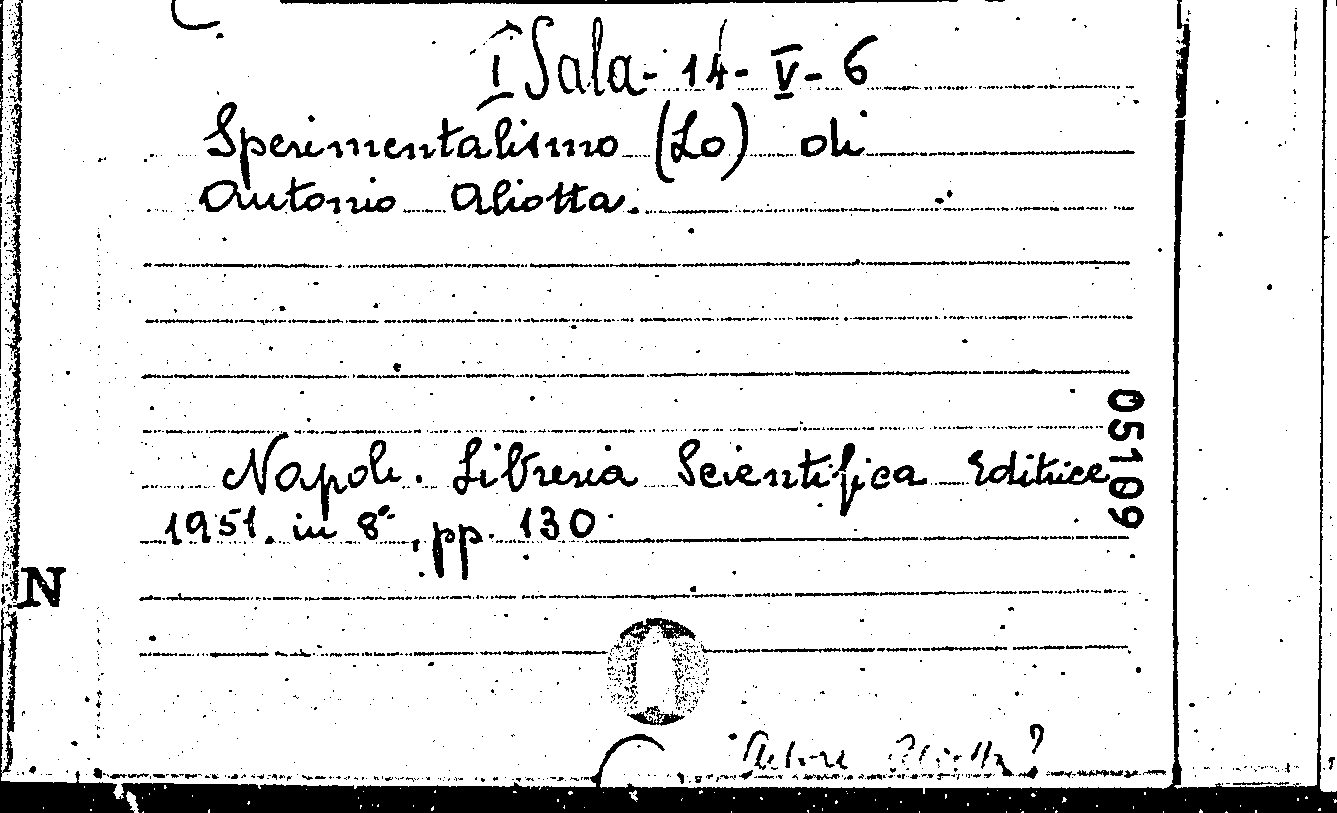 I Sala - 14 - V - 6
Sperimentalismo (Lo) di
Antonio Aliotta.
Napoli. Libreria Scientifica Editrice
1951. in 8°, pp. 130
05109
N
Autore Aliotta?